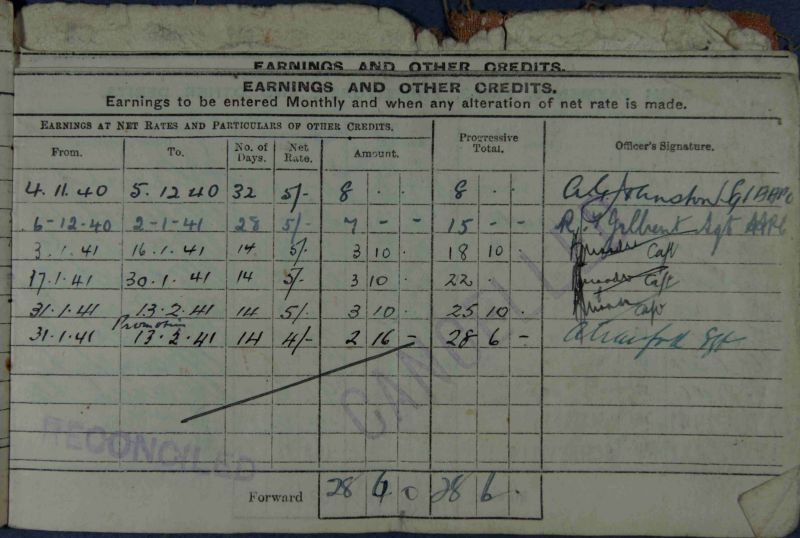 EARNINGS AND OTHER CREDITS.
EARNINGS AND OTHER CREDITS.
Earnings to be entered Monthly and when any alteration of net rate is made.
EARNINGS AT NET RATES AND PARTICULARS OF OTHER CREDITS.
From. To. No. of Days. Net Rate. Amount. Progressive Total. Officer's Signature.
4.11.40 5.12.40 32 5/- 8 . . 8 . . Johnston
6-12-40 2-1-41 28 5/- 7 - - 15 - - Sgt
3.1.41 16.1.41 14 5/. 3 10 . 18 10 . Capt
17.1.41 30.1.41 14 5/- 3 10 22 . Capt
31.1.41 13.2.41 14 5/. 3 10 . 25 10 . Capt
Promotion
31.1.41 13.2.41 14 4/- 2 16 - 28 6 -
CANCELLED
RECONCILED
Forward 28 6 0 28 6 .